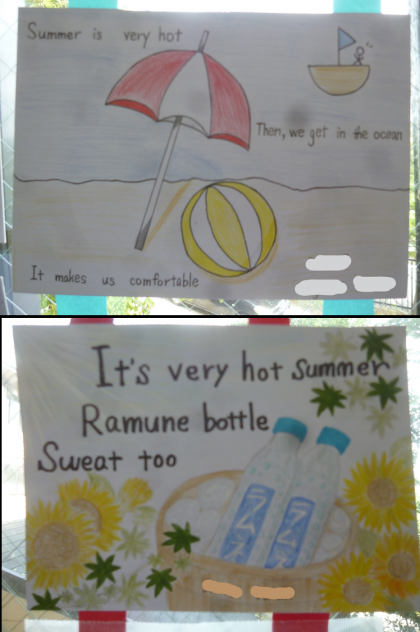 Summer is very hot
Then, we get in the ocean
It makes us comfortable
It's very hot summer
Ramune bottle
Sweat too
ラムネ
ラムネ